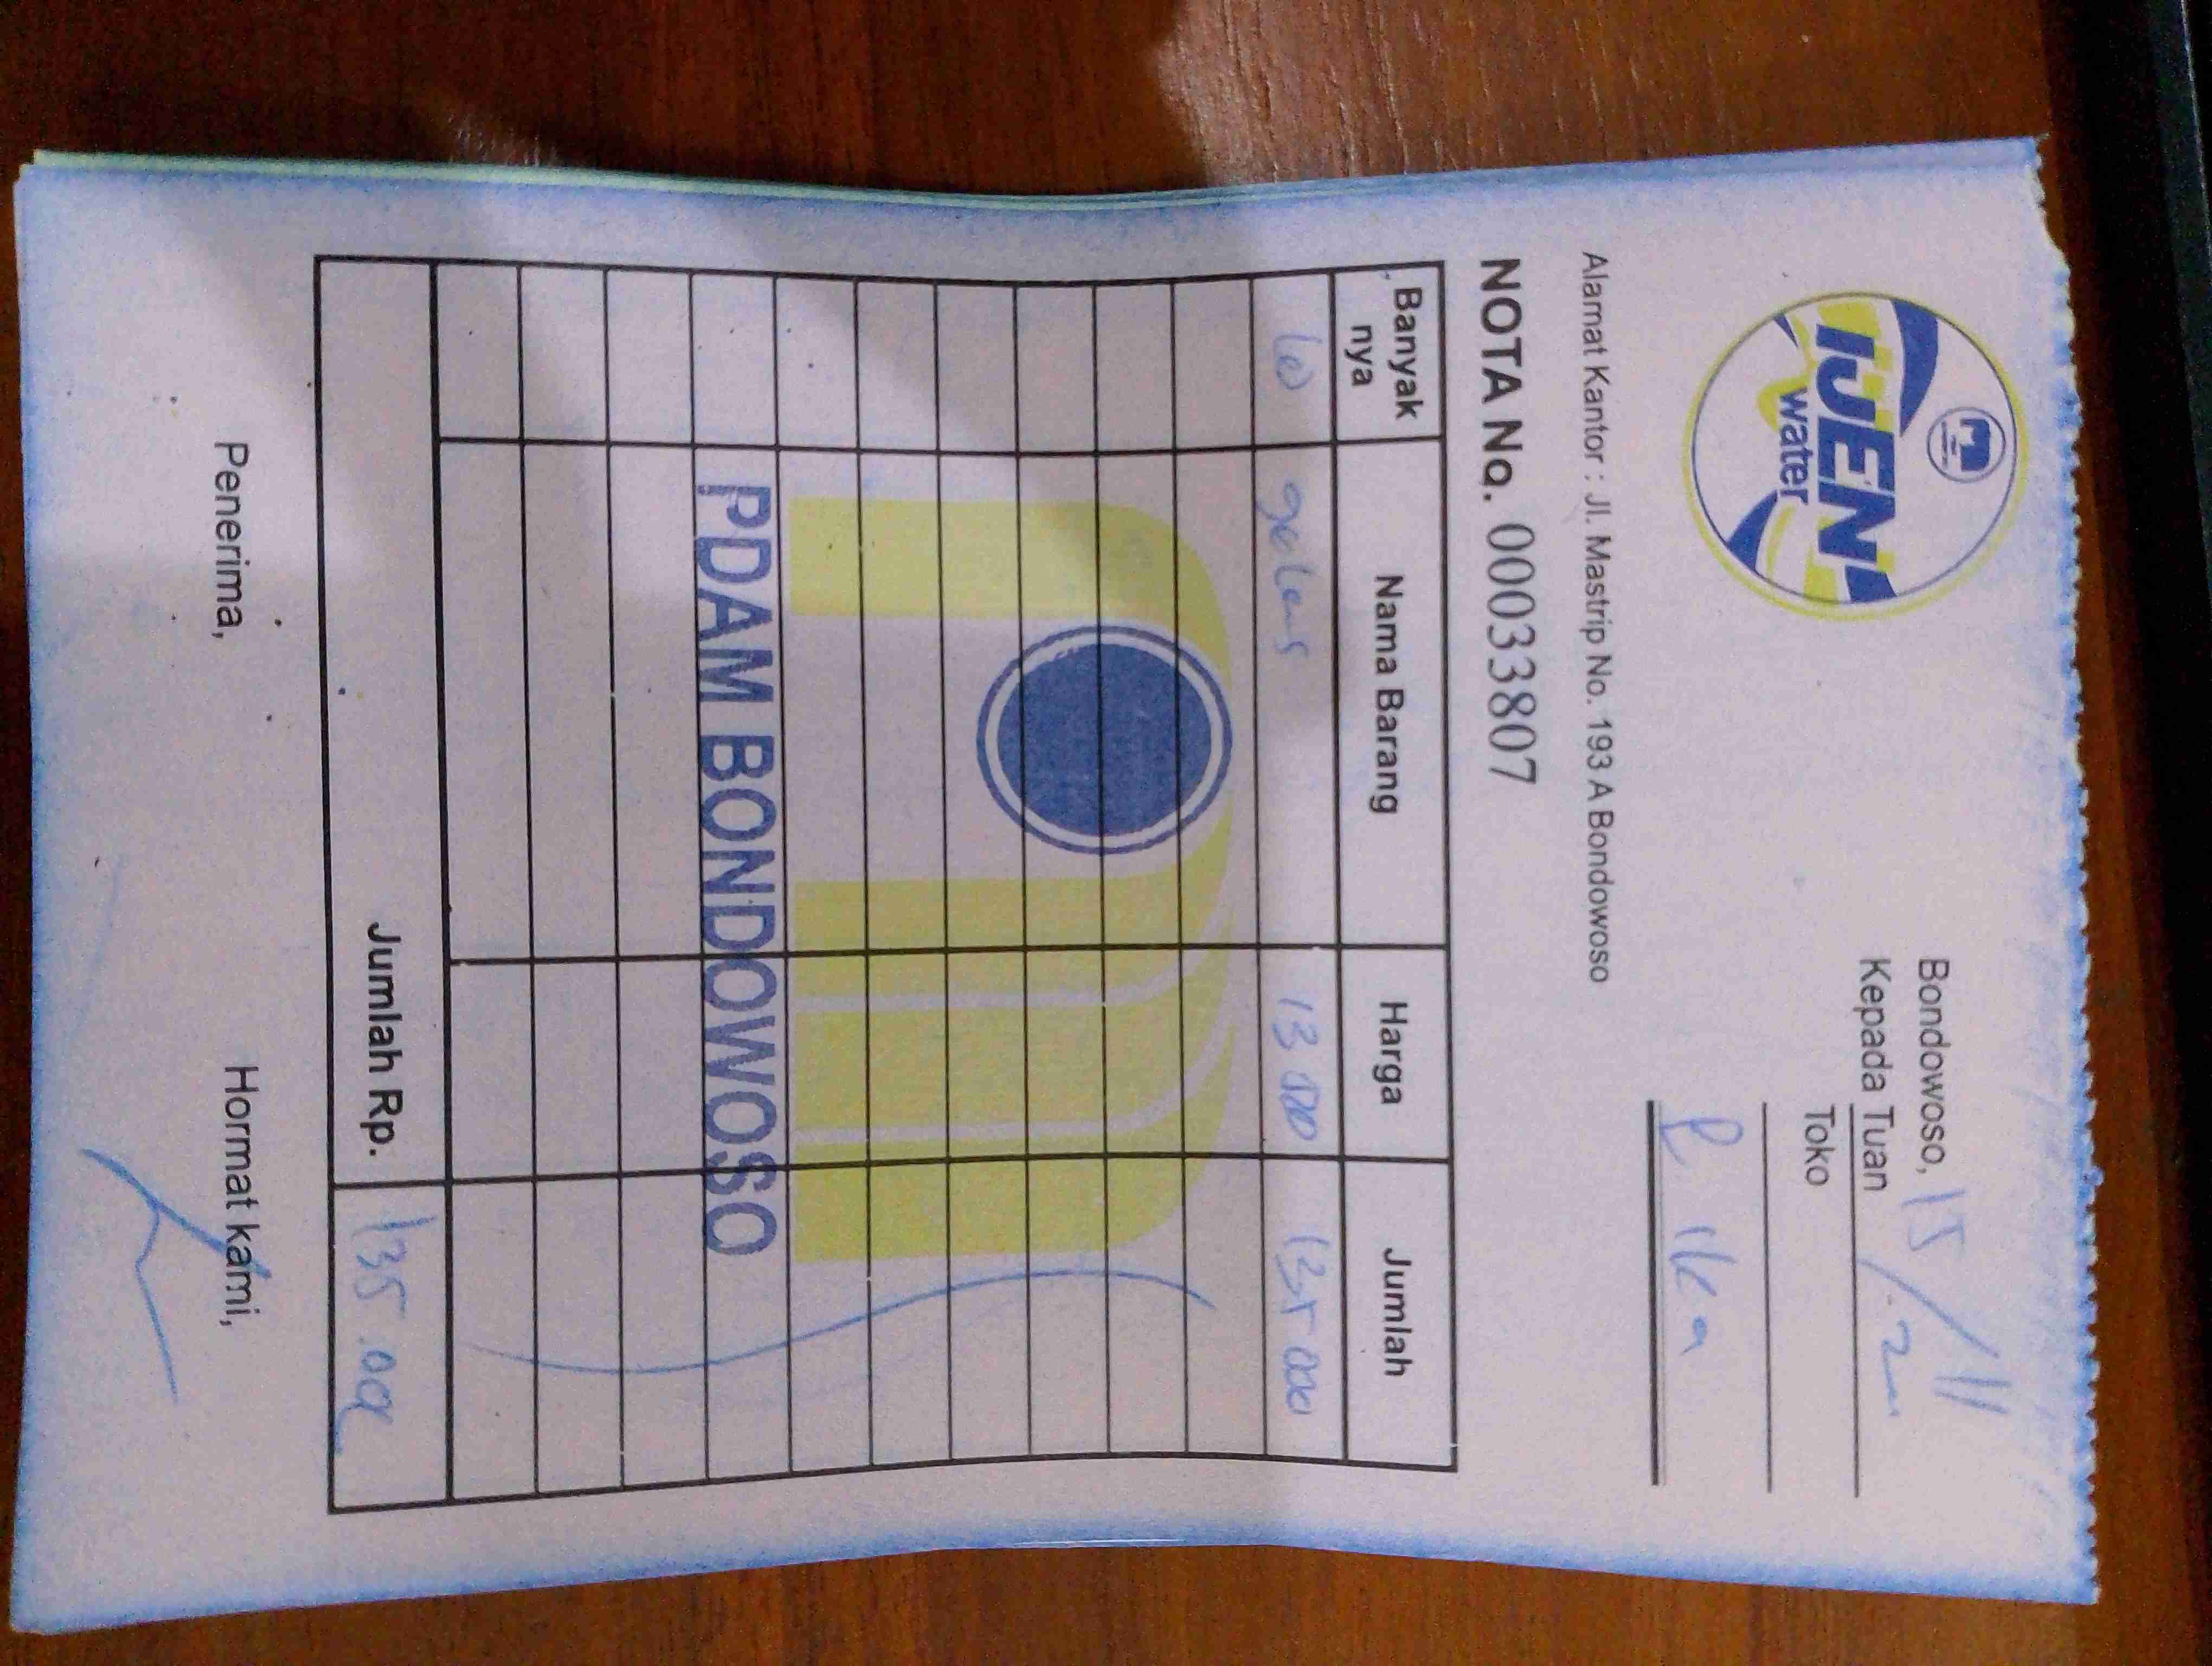 IJEN
water
Bondowoso, 15/11
Kepada Tuan
Toko
Ika
Alamat Kantor : Jl. Mastrip No. 193 A Bondowoso
NOTA No. 00033807
Banyak nya Nama Barang Harga Jumlah
10 gelas 13 500 135 000
PDAM BONDOWOSO
Jumlah Rp. 135.000
Penerima, Hormat kami,